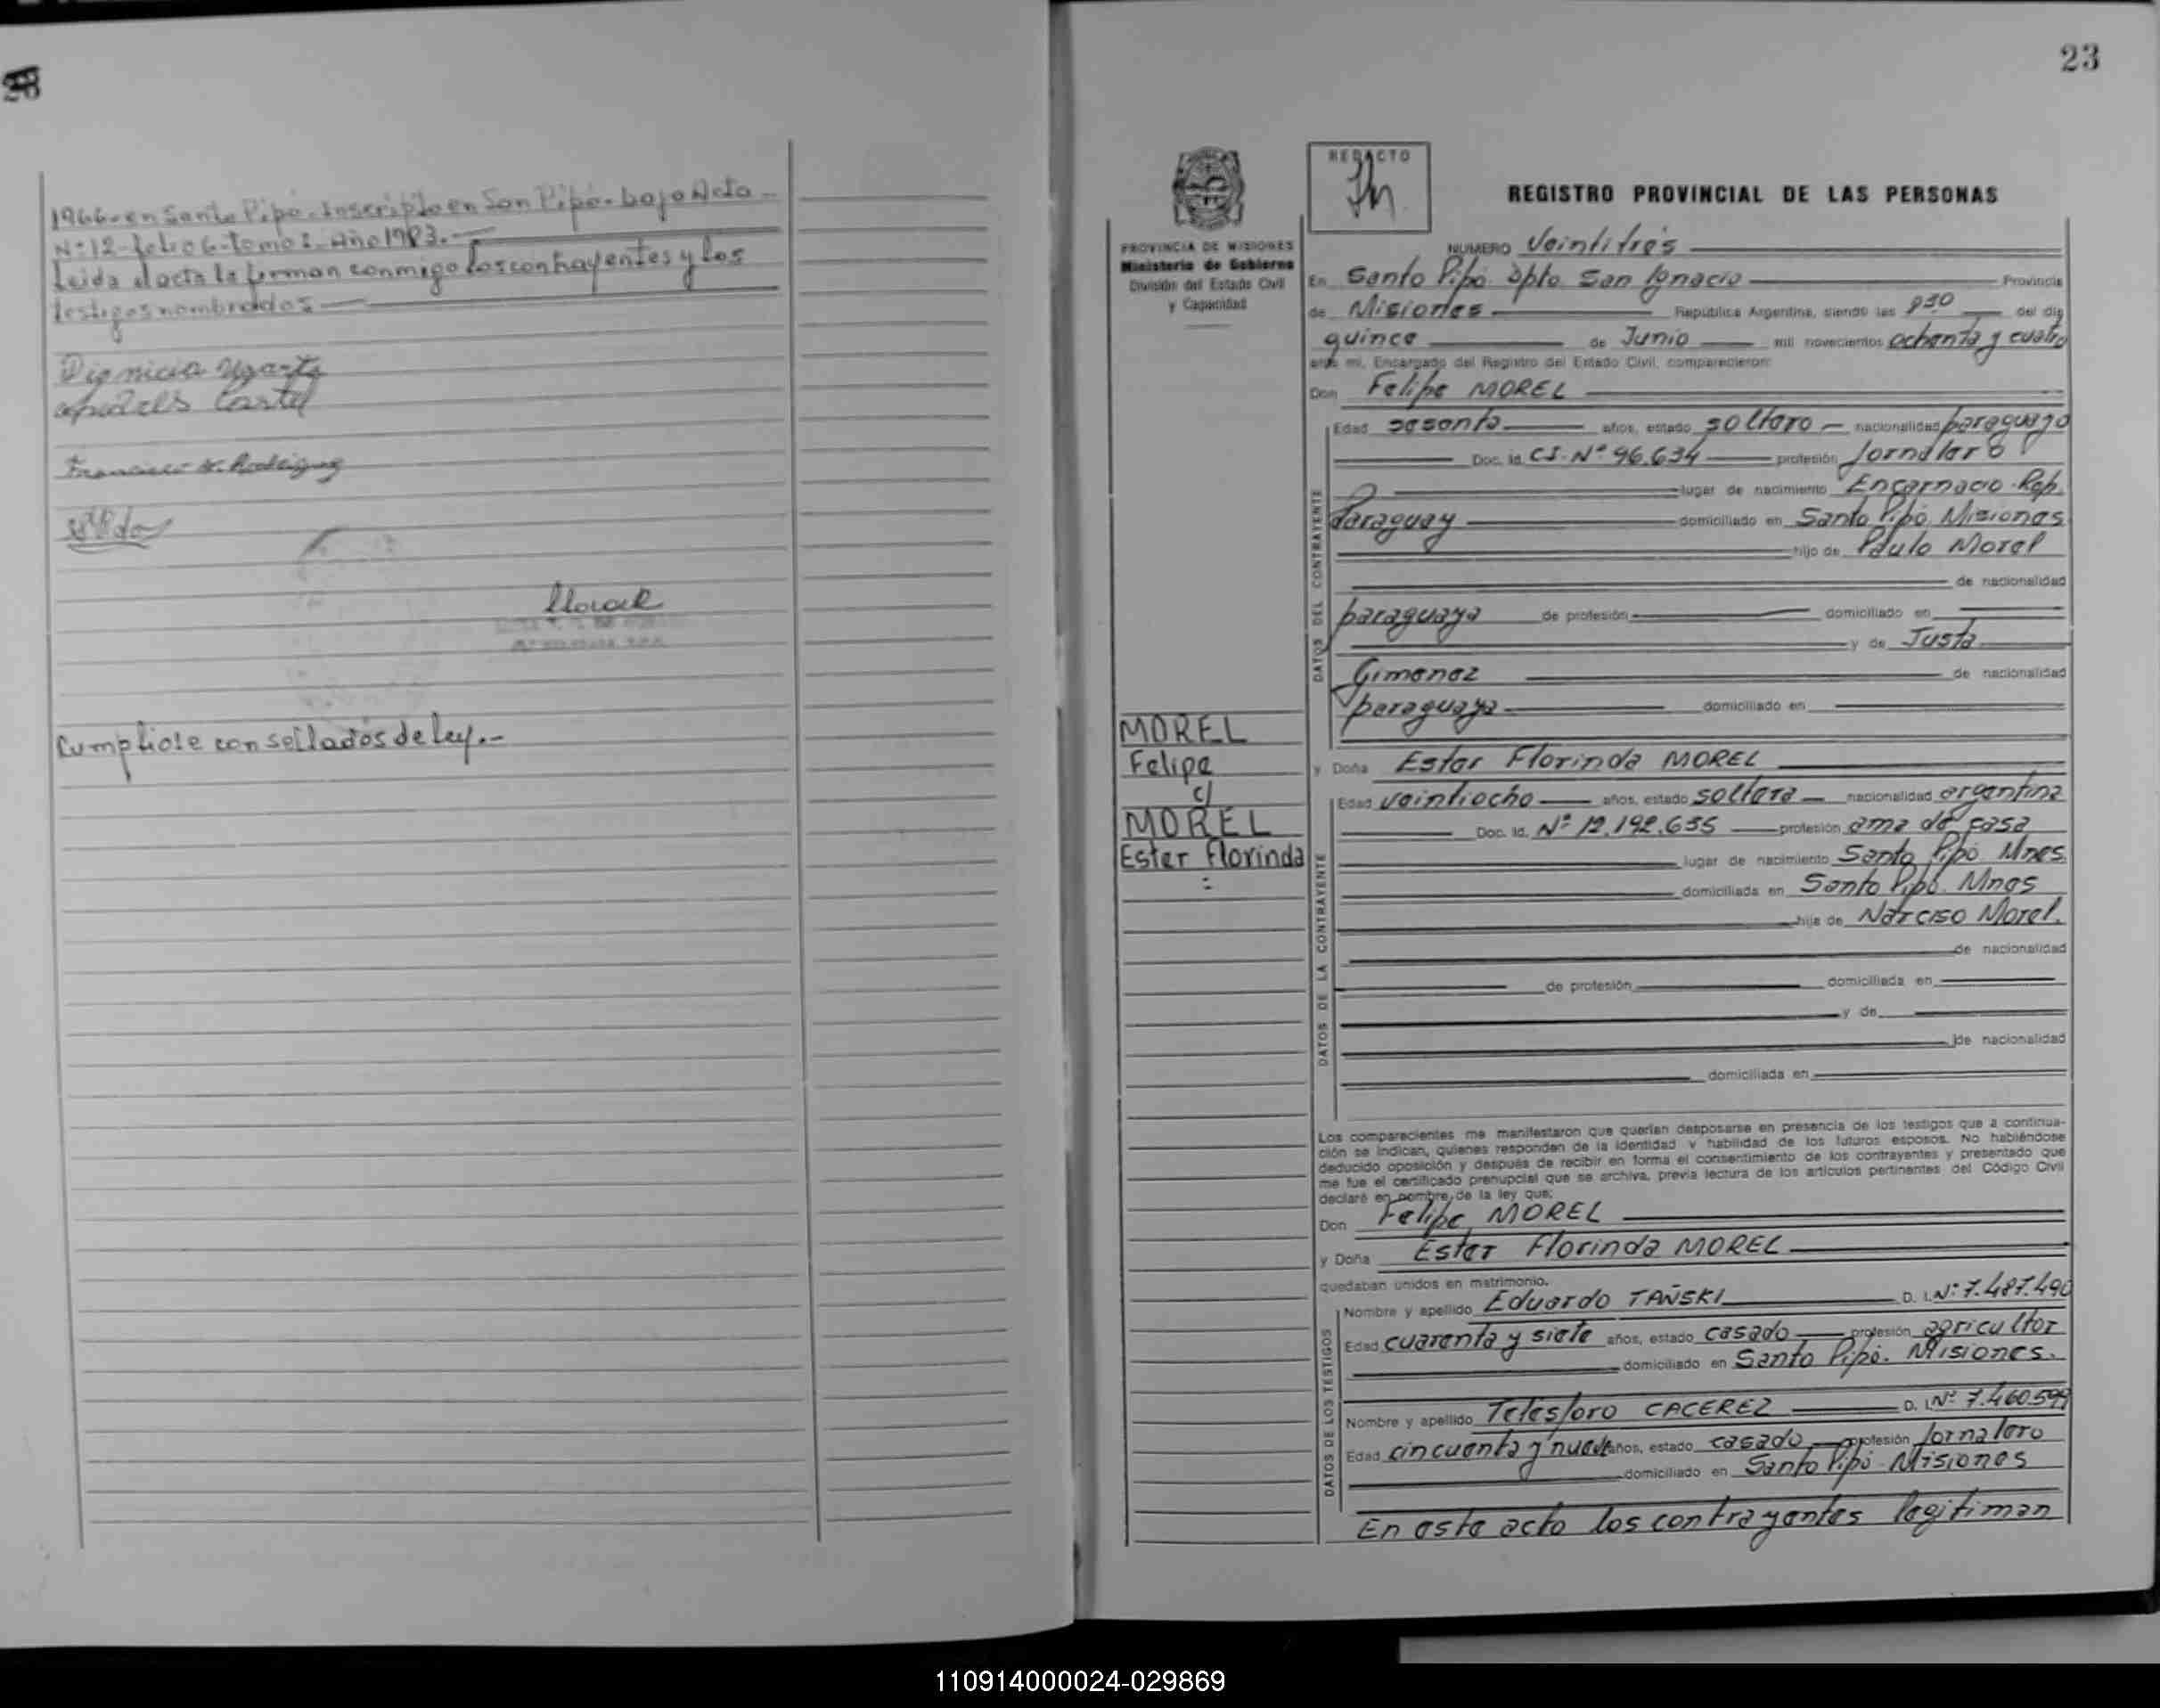 1966 - en Santo Pipó - Inscripto en San Pipó - bajo Acta -
Nº: 12 - folio 6 - tomo: - Año 1983. -
Leida el acta la firman conmigo los contrayentes y los
testigos nombrados
Francisco Rodriguez
Cumpliose con sellados de ley. -
23
REDACTO
REGISTRO PROVINCIAL DE LAS PERSONAS
PROVINCIA DE MISIONES
Ministerio de Gobierno
División del Estado Civil
y Capacidad
NUMERO Veintitrés
En Santo Pipó Dpto San Ignacio Provincia
de Misiones República Argentina, siendo las 930 del día
quince de Junio mil novecientos ochenta y cuatro
ante mí, Encargado del Registro del Estado Civil, comparecieron:
Don Felipe MOREL
DATOS DEL CONTRAYENTE
Edad sesenta años, estado soltero nacionalidad paraguayo
Doc. Id. C.I. Nº 96.634 profesión Jornalero
lugar de nacimiento Encarnacio Rep.
Paraguay domiciliado en Santo Pipó Misiones
hijo de Paulo Morel
de nacionalidad
paraguaya de profesión domiciliado en
y de Justa
Gimenez de nacionalidad
paraguaya domiciliado en
MOREL
Felipe
c/
MOREL
Ester Florinda
y Doña Ester Florinda MOREL
DATOS DE LA CONTRAYENTE
Edad veintiocho años, estado soltera nacionalidad argentina
Doc. Id. Nº 12.192.635 profesión ama de casa
lugar de nacimiento Santo Pipó Mnes.
domiciliada en Santo Pipó. Mnes
hija de Narciso Morel.
de nacionalidad
de profesión domiciliada en
y de
de nacionalidad
domiciliada en
Los comparecientes me manifestaron que querían desposarse en presencia de los testigos que a continua-
ción se indican, quienes responden de la identidad y habilidad de los futuros esposos. No habiéndose
deducido oposición y después de recibir en forma el consentimiento de los contrayentes y presentado que
me fue el certificado prenupcial que se archiva, previa lectura de los artículos pertinentes del Código Civil
declaré en nombre de la ley que:
Don Felipe MOREL
y Doña Ester Florinda MOREL
quedaban unidos en matrimonio.
DATOS DE LOS TESTIGOS
Nombre y apellido Eduardo TAÑSKI D. I. Nº 7.487.490
Edad cuarenta y siete años, estado casado profesión agricultor
domiciliado en Santo Pipó. Misiones.
Nombre y apellido Telesforo CACEREZ D. I. Nº 7.460.599
Edad cincuenta y nueve años, estado casado profesión Jornalero
domiciliado en Santo Pipó - Misiones
En este acto los contrayentes legitiman
110914000024-029869